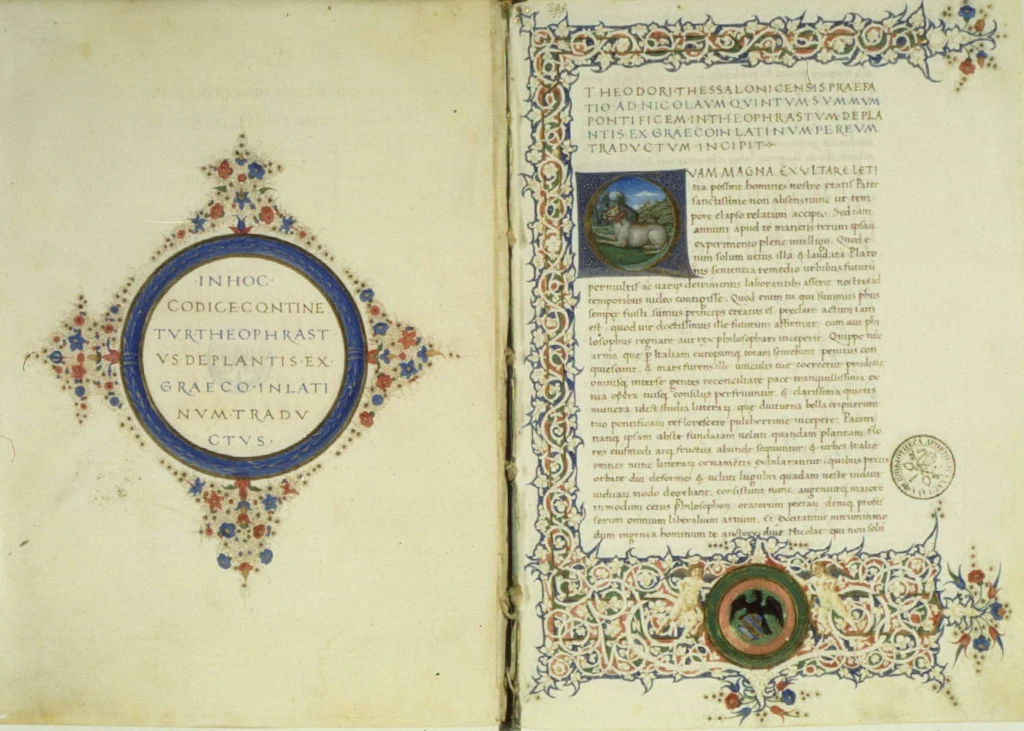 ·IN HOC·
CODICE·CONTINE
TVR THEOPHRAST
VS·DE PLANTIS·EX·
GRAECO·IN LATI
NVM·TRADV
CTVS·
THEODORI·THESSALONICENSIS PRAEFA
TIO·AD·NICOLAVM QVINTVM SVMMVM
PONTIFICEM·IN THEOPHRASTVM·DE PLA
NTIS·EX·GRAECO IN LATINVM PER EVM
TRADVCTVM INCIPIT
QVAM MAGNA EXVLTARE LETI
tia possint homines nostre etatis Pater
sanctissime non absens nunc ut tem
pore elapso relatum accipio. Sed iam
annum apud te manens rerum ipsaȝ
experimento plene intelligo. Quod e
nim solum uetus illa & laudata Plato
nis sententia remedio urbibus futurū
permultis ac uarijs detrimentis laborantib; affert nostris id
temporibus uideo contigisse. Quod enim tu qui summus phūs
semper fuisti summus princeps creatus es preclare actum iam
est quod uir doctissimus ille futurum affirmat cum aut phi
losophus regnare aut rex philosophari inceperit. Quippe nūc
arma que p̄ Italiam europamq; totam seuiebant penitus con
quieuerunt & mars furens ille uinculis tue coercetur prudētie
omnisq; inter se gentes reconciliate pace tranquillissima ex
tua opera tuisq; consilijs perfruuntur & clarissima quietis
munera id est studia litteraȝ que diuturna bella eripuerunt
tuo pontificatu reflorescere pulcherrime incepere. Pacem
nanq; ipsam abs te fundatam uelut quandam plantam flo
res eiusmodi atq; fructus abunde sequuntur & urbes Italie
omnes nunc litteraȝ ornamētis exhilarantur quibus prius
orbate diu deformes & uelut lugubri quadam ueste indute
uiduaȝ modo degebant. consistunt nunc augenturq; maiore
in modum cetus philosophoȝ oratorum poetaȝ deniq; profes
sorum omnium liberalium artium. Et excitantur mirum in mo
dum ingenia hominum te auctore diue Nicolae qui non solū